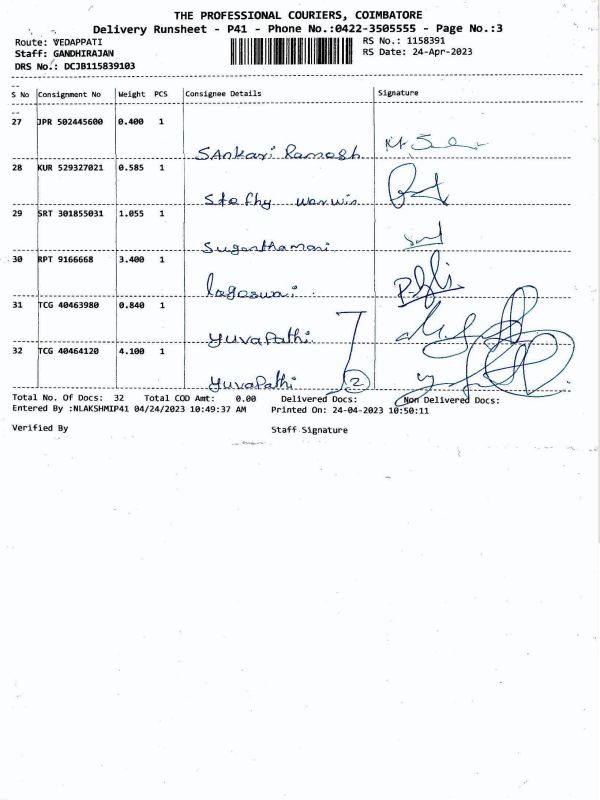 THE PROFESSIONAL COURIERS, COIMBATORE
Delivery Runsheet - P41 - Phone No.:0422-3505555 - Page No.:3
Route: VEDAPPATI RS No.: 1158391
Staff: GANDHIRAJAN RS Date: 24-Apr-2023
DRS No.: DCJB115839103
S No Consignment No Weight PCS Consignee Details Signature
27 JPR 502445600 0.400 1
Sankari Ramesh
28 KUR 529327021 0.585 1
Stefhy
29 SRT 301855031 1.055 1
Suganthamani
30 RPT 9166668 3.400 1
31 TCG 40463980 0.840 1
Yuvapathi
32 TCG 40464120 4.100 1
Yuvapathi 2
Total No. Of Docs: 32 Total COD Amt: 0.00 Delivered Docs: Non Delivered Docs:
Entered By :NLAKSHMIP41 04/24/2023 10:49:37 AM Printed On: 24-04-2023 10:50:11
Verified By Staff Signature